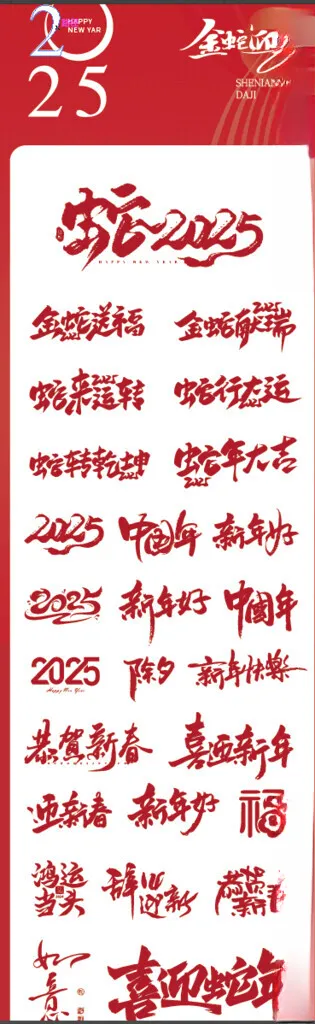 20
25
HAPPY
NEW YAR
金蛇迎
SHENIAN
DAJI
蛇2025
HAPPY NEW YEAR
金蛇送福
金蛇献瑞
2025
蛇来运转
2025
蛇行大运
2025
蛇转乾坤
2025
蛇年大吉
2025
2025
中国年
新年好
2025
新年好
中國年
2025
Happy New Year
除夕
新年快樂
恭賀新春
喜迎新年
迎新春
新年好
福
鸿运
当头
辞旧
迎新
恭贺
新春
如
意
喜迎蛇年